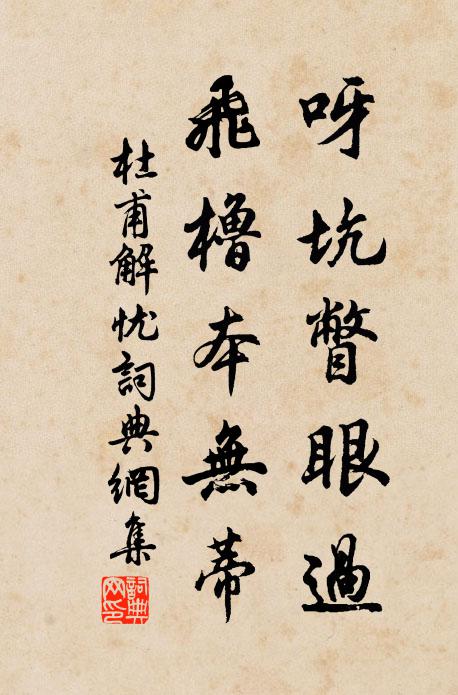 呀坑瞥眼過
飛櫓本無蒂
杜甫解忧詞典網集
詞典网印